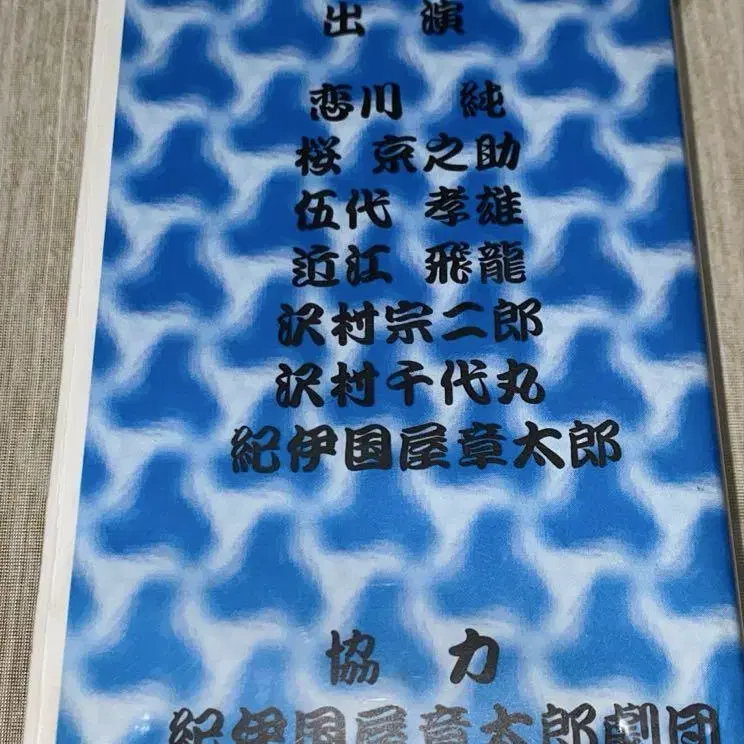 出 演
恋川 純
桜 京之助
伍代 孝雄
近江 飛龍
沢村宗二郎
沢村千代丸
紀伊国屋章太郎
協 力
紀伊国屋章太郎劇団